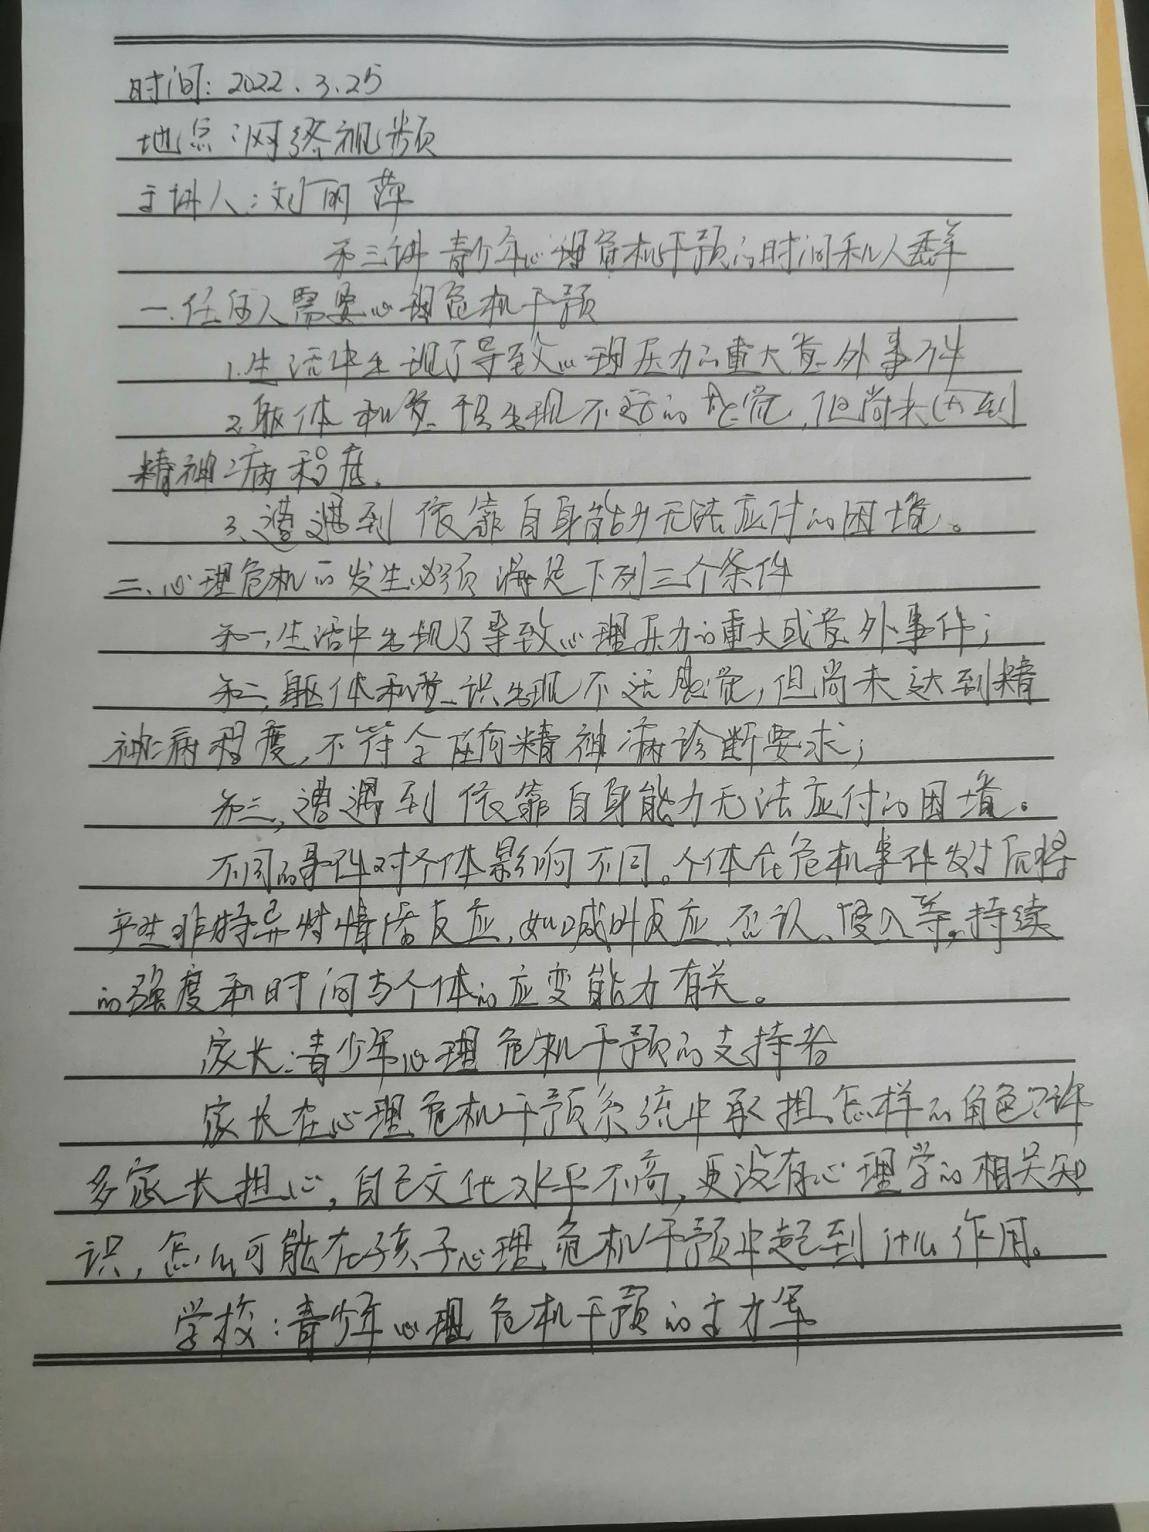 时间：2022.3.25
地点：网络视频
主讲人：刘丽萍
第三讲 青少年心理危机干预的时间和人群
一.任何人需要心理危机干预
1.生活中出现了导致心理压力的重大意外事件
2.躯体和意识出现不适的感觉，但尚未达到
精神病程度。
3.遭遇到依靠自身能力无法应付的困境。
二、心理危机的发生必须满足下列三个条件
第一，生活中出现了导致心理压力的重大或意外事件；
第二，躯体和意识出现不适感觉，但尚未达到精
神病程度，不符合任何精神病诊断要求；
第三，遭遇到依靠自身能力无法应付的困境。
不同的事件对个体影响不同。个体在危机事件发生后将
产生非特异性情绪反应，如喊叫反应、否认、侵入等，持续
的强度和时间与个体的应变能力有关。
家长：青少年心理危机干预的支持者
家长在心理危机干预系统中承担怎样的角色？许
多家长担心，自己文化水平不高，更没有心理学的相关知
识，怎么可能在孩子心理危机干预中起到什么作用。
学校：青少年心理危机干预的主力军